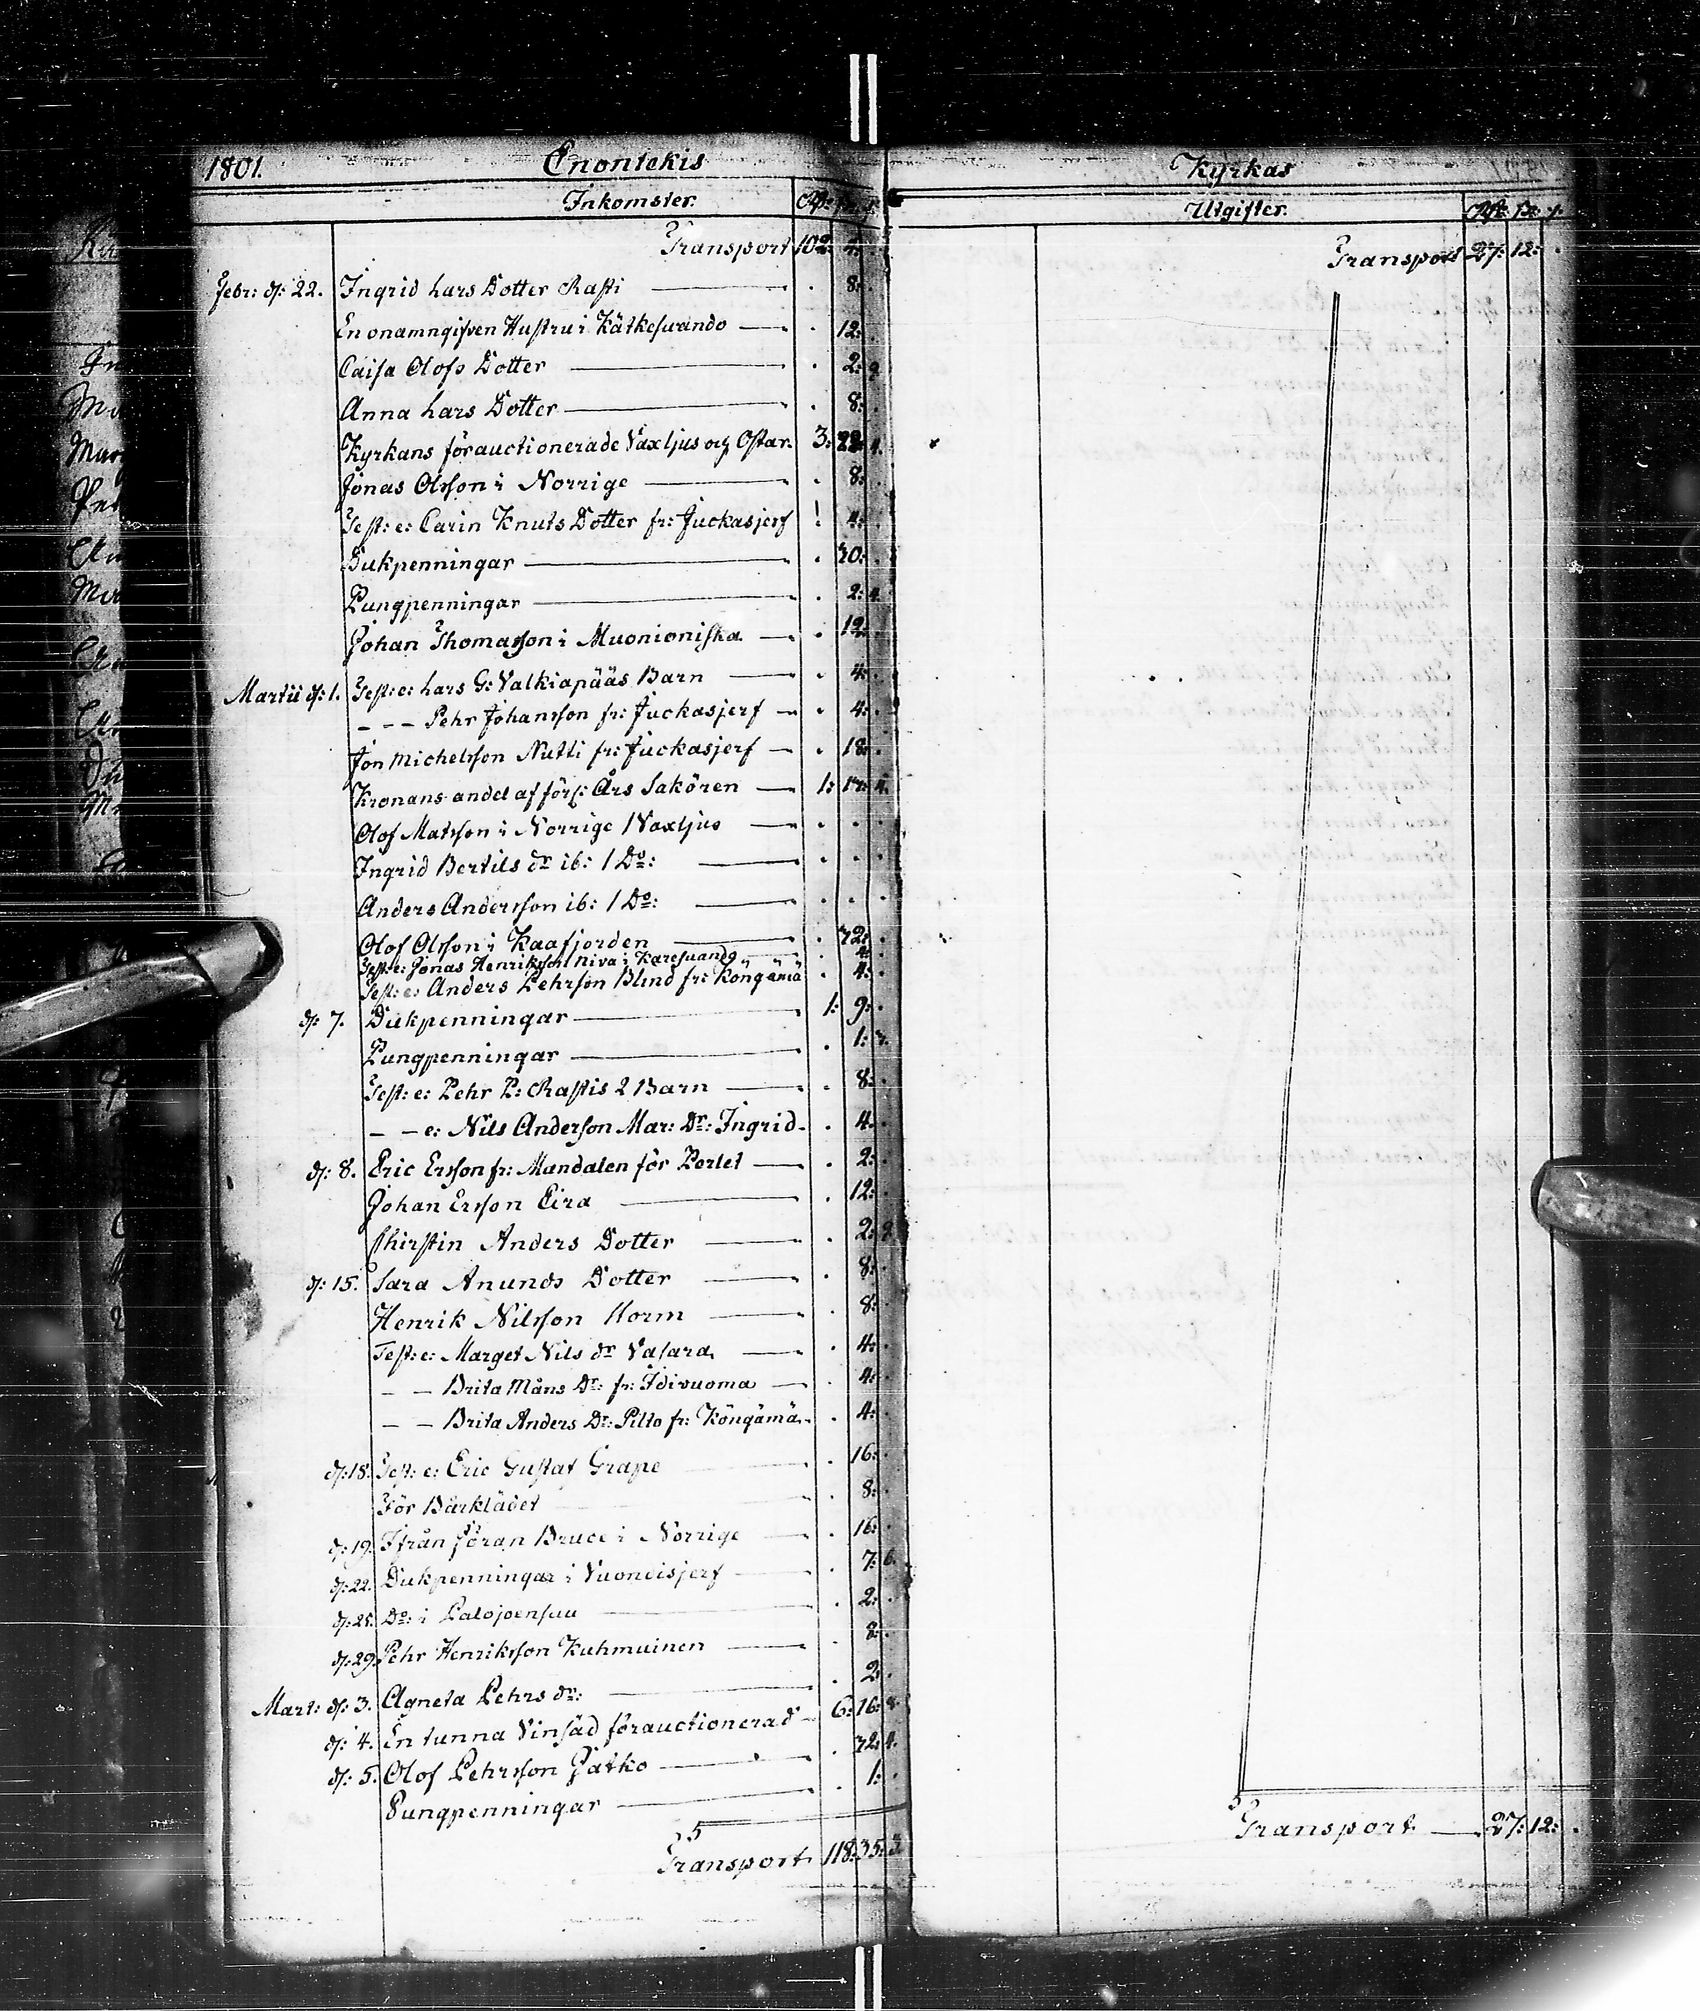 1801. Enontekis
Inkomster. Rd: sk: r.
Transport 102: 4: .
Febr: d: 22. Ingrid Lars Dotter Rasti . 8: .
En onamngifven Hustru i Kätkesuando . 12: .
Caisa Olofs Dotter . 2:
Anna Lars Dotter . 8: .
Kyrkans förauctionerade Vaxljus och Ostar. 3:
Jonas Olsson i Norrige . 8: .
Test: e: Carin Knuts Dotter fr: Juckasjerf . 4: .
Dukpenningar
Pungpenningar . 2: 4.
Johan Thomasson i Muonioniska . 12: .
Martii d: 1. Test: e: Lars G: Valkiapääs Barn . 4: .
– – – Pehr Johansson fr: Juckasjerf . 4: .
Jon Michelsson Nutti fr: Juckasjerf . 18: .
Kronans andel af förfl: Års Saköron 1: 17: 4.
Olof Matsson i Norrige 1 Vaxljus . . .
Ingrid Bertils dr ib: 1 Do: . . .
Anders Andersson ib: 1 Do: . . .
Olof Olsson i Kaafjorden
Test: e: Jonas Henriksson Niva i Karesuando . 4: .
Test: e: Anders Pehrson Blind fr: Köngämä . 4: .
d: 7. Dukpenningar 1: 9: .
Pungpenningar . 1:
Test: e: Pehr P: Rastis 2 Barn . 8: .
– – e: Nils Anderson Mar: Dr: Ingrid . 4: .
d: 8. Eric Ersson fr: Mandalen för Portet . 2: .
Johan Ersson Eira . 12: .
Chirstin Anders Dotter . 2:
d: 15. Sara Anunds Dotter . 8: .
Henrik Nilsson Horm . 8: .
Test: e: Marget Nils dr Vasara . 4: .
– – Brita Måns Dr: fr: Idivuoma . 4: .
– – Brita Anders Dr: Pilto fr: Köngämä . 4: .
d: 18. Test: e: Eric Gustaf Grape . 16: .
För Bårklädet . 8: .
d: 19. Ifrån Jöran Bruce i Norrige . 16: .
d: 22. Dukpenningar i Vuondisjerf . 7: 6.
d: 25. Do: i Palojoensuu . 2: .
d: 29. Pehr Henriksson Kuhmuinen . 8: .
Mart: d: 3. Agneta Pehrs dr: . 2: .
d: 4. En tunna Vinsäd förauctionerad 6: 16: 8.
d: 5. Olof Pehrsson Gatko
Pungpenningar . 1: .
Transport 118: 35: 3.
Kyrkas
Utgifter. Rd: sk: r.
Transport 27: 12: .
Transport 27: 12: .